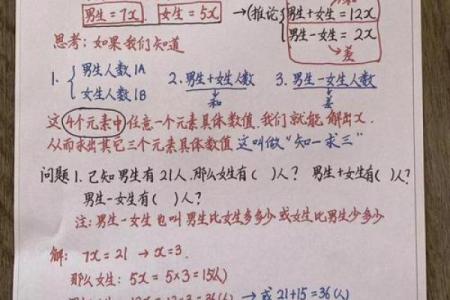 男生=7x 女生=5x →(推论 男生+女生=12x
→和
男生-女生=2x
→差
思考:如果我们知道
1. { 男生人数 1A
女生人数 1B
2. 男生+女生人数
→和
3. 男生-女生人数
→差
这4个元素中任意一个元素具体数值,我们就能解出x.
从而求出其它三个元素具体数值 这叫做"知一求三"
问题1.已知男生有21人,那么女生有( )人? 男生+女生有( )人?
男生-女生有( )人?
注:男生-女生也叫男生比女生多多少 或女生比男生少多少
解: 7x=21 → x=3.
那么女生: 5x=5×3=15(人)
12x=12×3=36(人) → 或 21+15=36(人)